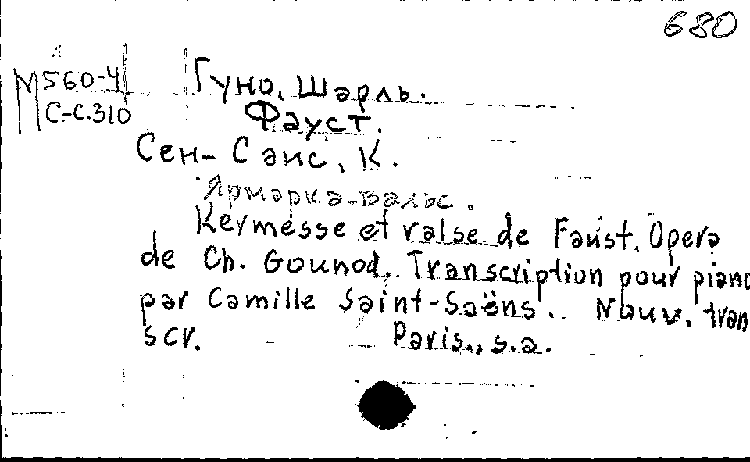 680
М560-4
С-С.310
Гуно, Шарль.
Фауст.
Сен-Санс, К.
Ярмарка-вальс.
Kermesse et valse de Faust. Opera
de Ch. Gounod. Transcription pour piano
par Camille Saint-Saëns. Nouv. tran
scr. Paris, s.a.